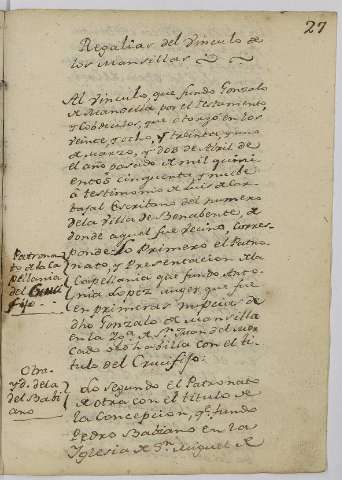 27
Regalias del vinculo de
los Mansillas
Al vinculo, que fundo Gonzalo
de Mansilla, por el testamento
y Cobdicilos, que otorgó en los
veinte, y ocho, y treinta, y uno
de Marzo, y dos de Abril de
el año pasado de mil quini
entos cinquenta y nuebe
à testimonio de Luis de
Escribano del numero
de la Villa de Benabente, de
donde aquel fue vecino, corres-
ponde lo Primero el Patro-
nato, y Presentacion de la
Capellania que fundo Anto-
nia Lopez muger que fue
en primeras nupcias de
dho Gonzalo de Mansilla
en la Ygª de Sn Juan del Mer-
cado de dha billa con el ti-
tulo del Crucifijo:
Patrona-
to de la Ca
pellania
del Cruci
fijo
Lo segundo el Patronato
de otra con el titulo de
la Concepcion, q. fundo
Pedro Babiano en la
Yglesia de Sn. Miguel de
Otra
yd. de la
del Babi
ano